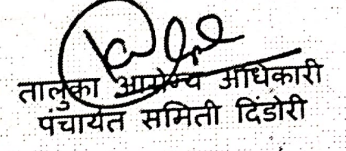 तालुका आरोग्य अधिकारी
पंचायत समिती दिंडोरी